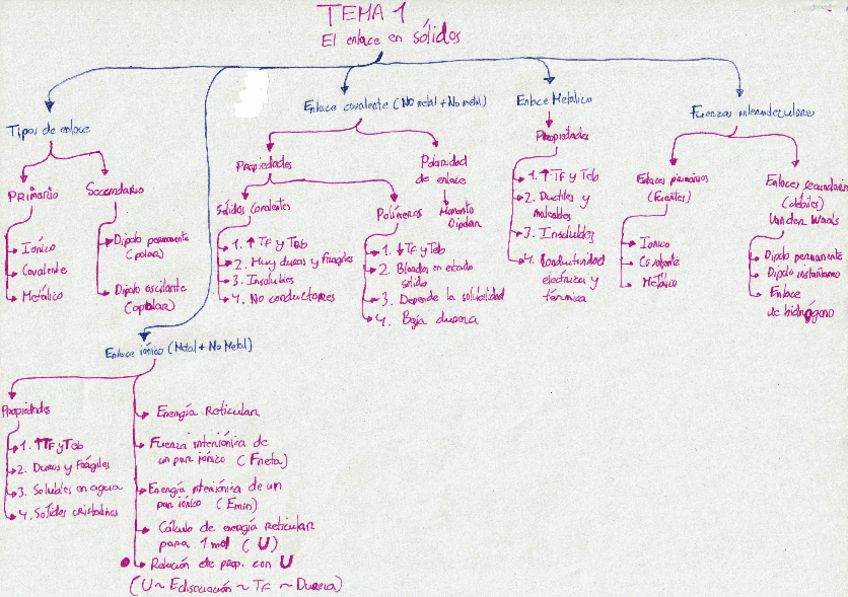 TEMA 1
El enlace en sólidos
Tipos de enlace
PRIMARIO
Iónico
Covalente
Metálico
Secundario
Dipolo permanente
(polar)
Dipolo oscilante
(apolar)
Enlace covalente (No metal + No metal)
Propiedades
Sólidos Covalentes
1. ↑ TF y Teb
2. Muy duros y Frágiles
3. Insolubles
4. No conductores
Polímeros
1. ↓ TF y Teb
2. Blandos en estado
sólido
3. Depende la solubilidad
4. Baja dureza
Polaridad
de enlace
Momento
Dipolar
Enlace Metálico
Propiedades
1. ↑ TF y Teb
2. Ductiles y
maleables
3. Insolubles
4. Conductividad
eléctrica y
térmica
Fuerzas intermoleculares
Enlaces primarios
(fuertes)
Iónico
Covalente
Metálico
Enlaces secundarios
(débiles)
Van der Waals
Dipolo permanente
Dipolo instantáneo
Enlace
de hidrógeno
Enlace iónico (Metal + No Metal)
Propiedades
1. ↑TF y Teb
2. Duros y Frágiles
3. Solubles en agua
4. Sólidos cristalinos
Energía Reticular
Fuerza interiónica de
un par iónico (Fneta)
Energía interiónica de un
par iónico (Emin)
Cálculo de energía reticular
para 1 mol (U)
Relación de prop. con U
(U ~ Edisociación ~ TF ~ Dureza)